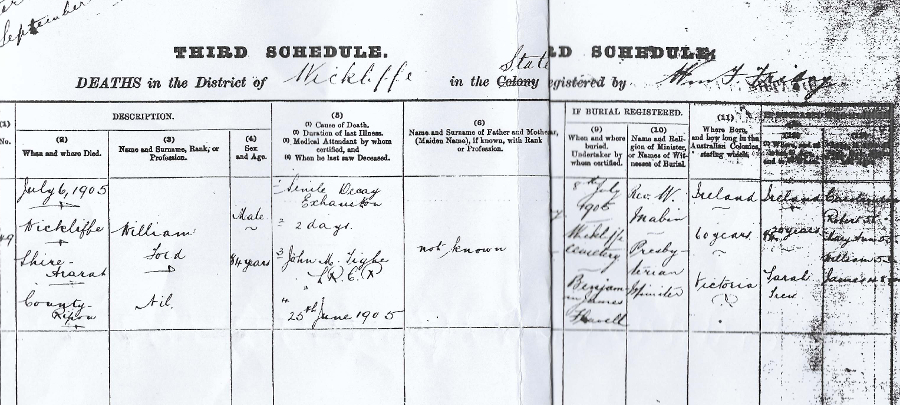 September
THIRD SCHEDULE.
State
RD SCHEDULE
DEATHS in the District of Wickliffe in the Colony registered by Wm F
DESCRIPTION.
(1)
No.
(2)
When and where Died.
(3)
Name and Surname, Rank, or
Profession.
(4)
Sex
and Age.
(5)
(1) Cause of Death.
(2) Duration of last Illness.
(3) Medical Attendant by whom
certified, and
(4) When he last saw Deceased.
(6)
Name and Surname of Father and Mother,
(Maiden Name), if known, with Rank
or Profession.
IF BURIAL REGISTERED.
(9)
When and where
buried.
Undertaker by
whom certified.
(10)
Name and Reli-
gion of Minister,
or Names of Wit-
nesses of Burial.
(11)
Where Born,
and how long in the
Australian Colonies,
stating which.
July 6, 1905
Wickliffe
Shire-
Ararat
County-
Ripon
William
Ford
Nil
Male
84 years
1 Senile Decay
Exhaustion
2 2 days.
3 John M. Tighe
L.R.C.P.
4
25th June 1905
not known
8th July
1905
Wickliffe
cemetery
Benjam-
in James
Rev. W.
Mabin
Presby-
terian
Minister
Ireland
60 years
Victoria
Ireland
30 years
Sarah
Robert
Mary Ann
William
James